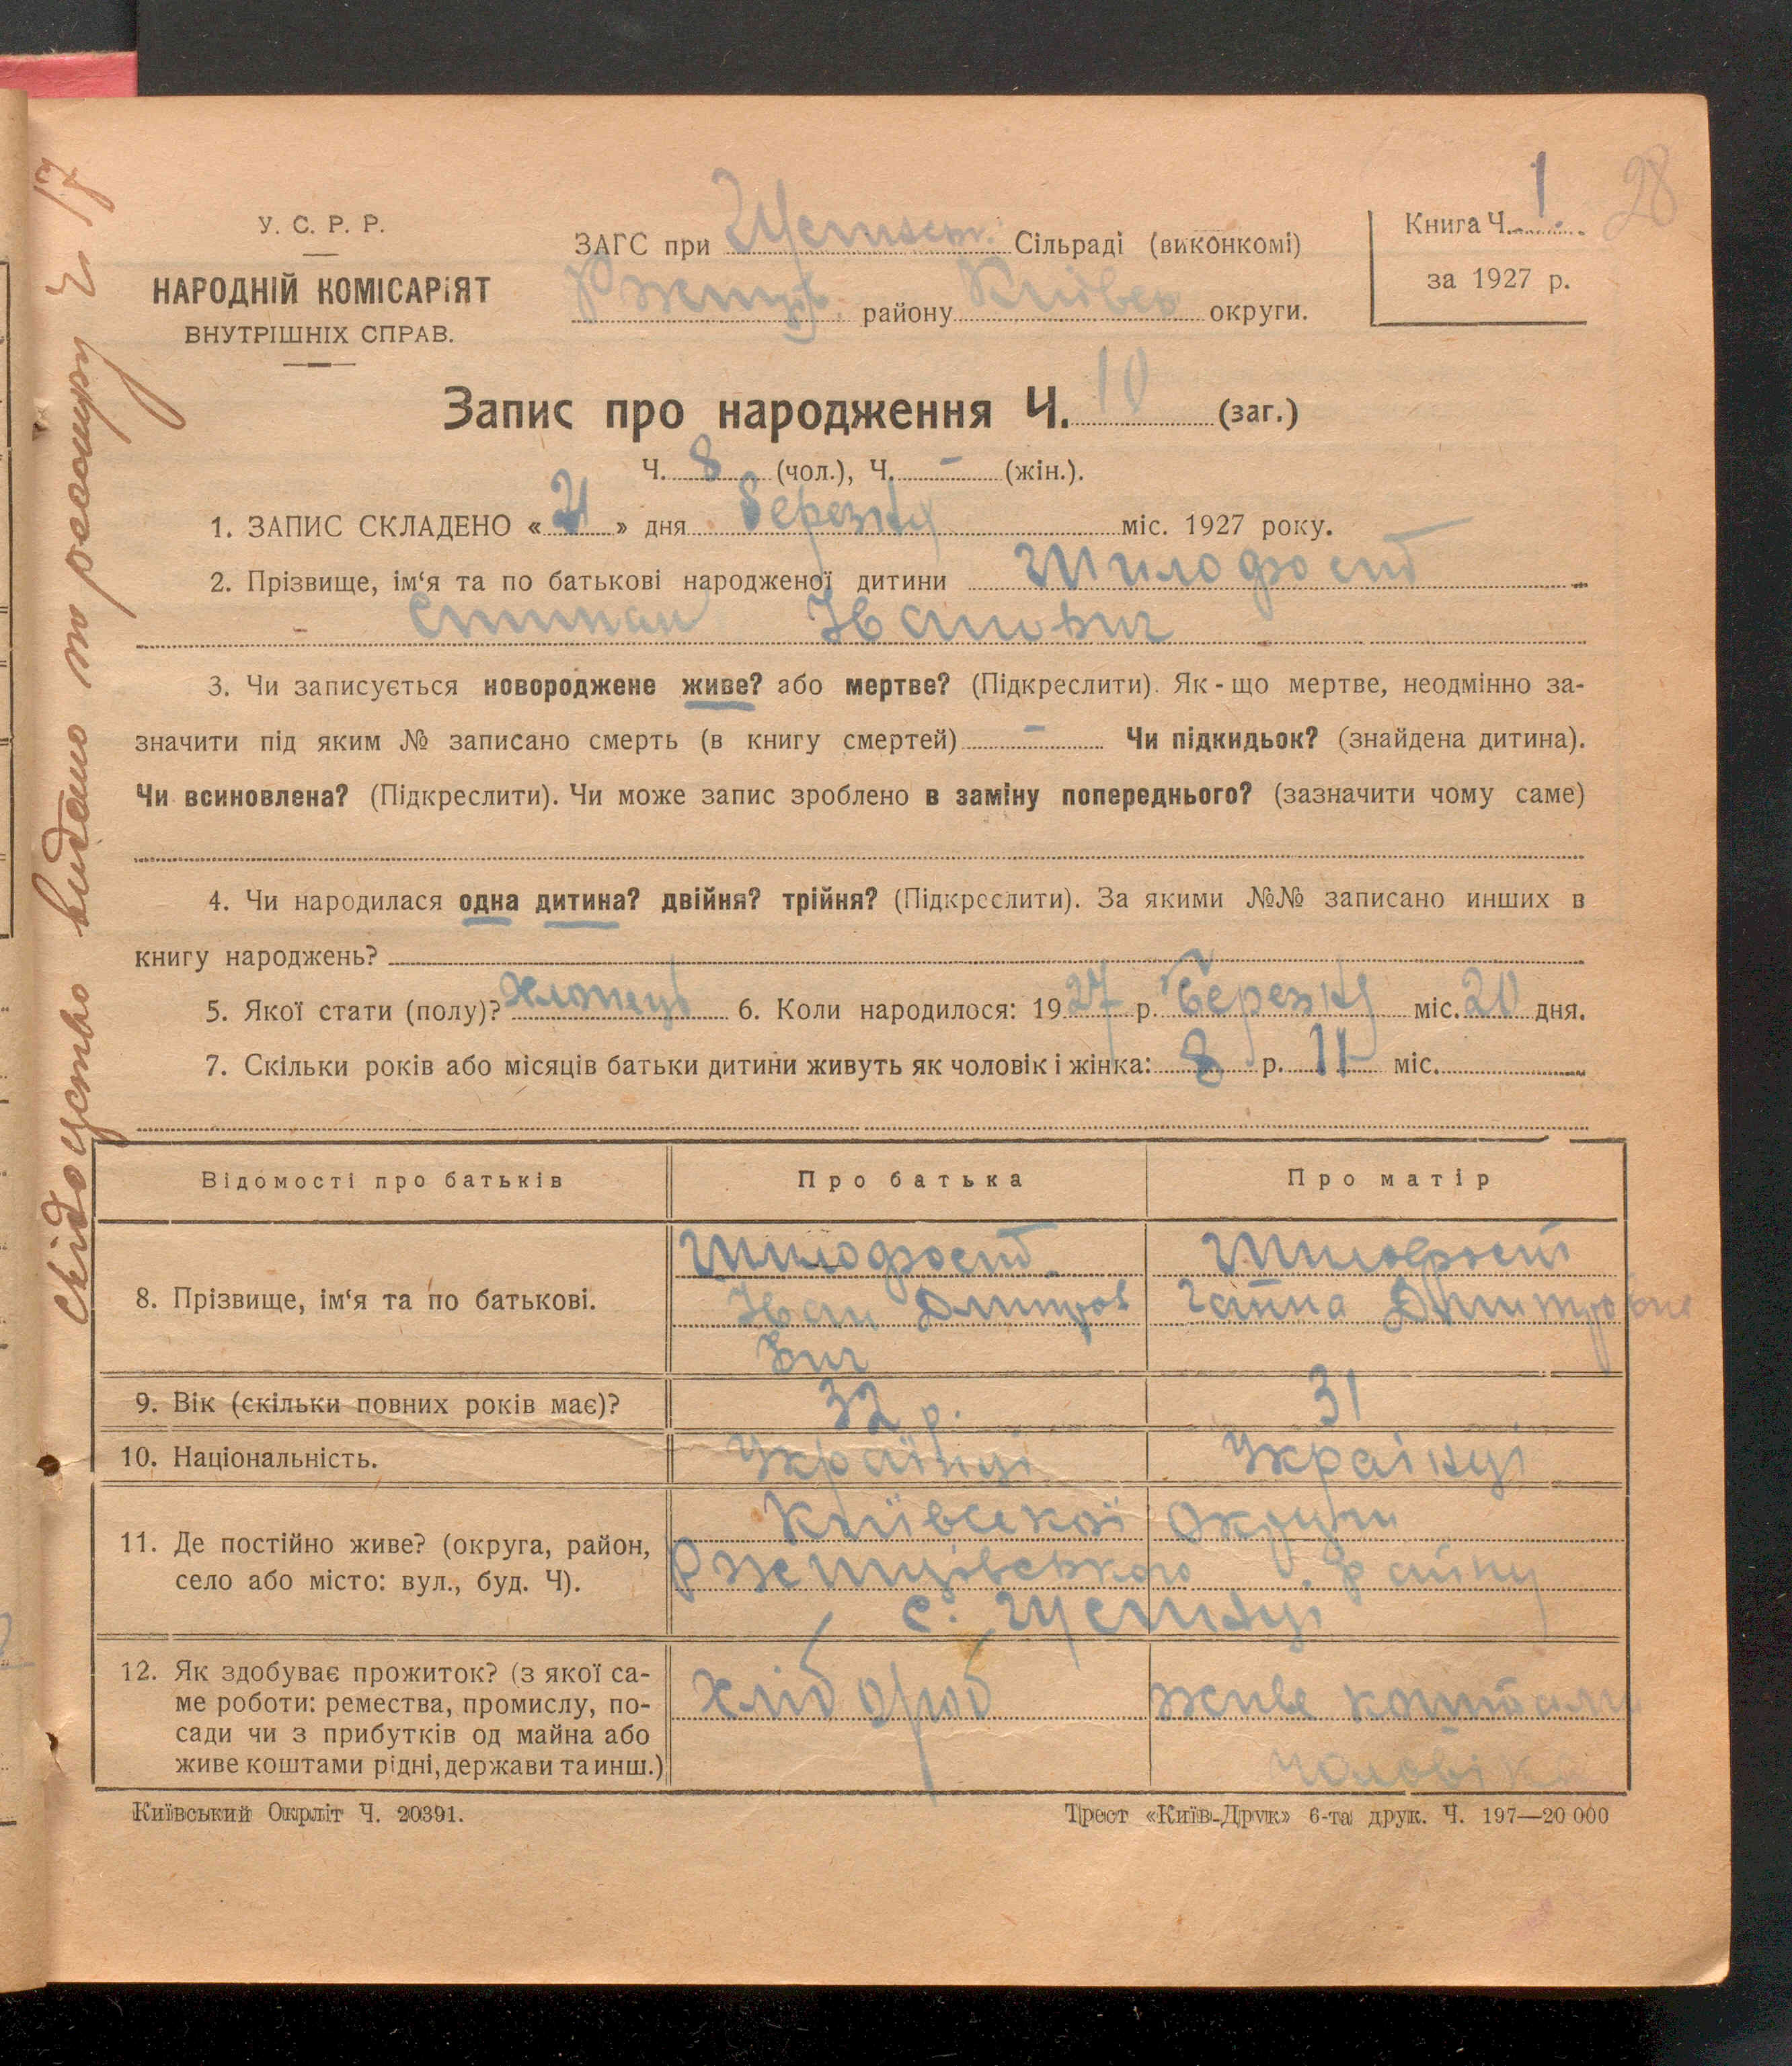 28
У. С. Р. Р.
НАРОДНІЙ КОМІСАРІЯТ
ВНУТРІШНІХ СПРАВ.
ЗАГС при Щепіськ. Сільраді (виконкомі)
Ржищ. району Київсь округи.
Книга Ч. 1.
за 1927 р.
Запис про народження Ч. 10 (заг.)
Ч. 8 (чол.), Ч. – (жін.).
1. ЗАПИС СКЛАДЕНО «21» дня березня міс. 1927 року.
2. Прізвище, ім‘я та по батькові народженої дитини
Іванович
3. Чи записується новороджене живе? або мертве? (Підкреслити). Як-що мертве, неодмінно за-
значити під яким № записано смерть (в книгу смертей) – Чи підкидьок? (знайдена дитина).
Чи всиновлена? (Підкреслити). Чи може запис зроблено в заміну попереднього? (зазначити чому саме)
4. Чи народилася одна дитина? двійня? трійня? (Підкреслити). За якими №№ записано инших в
книгу народжень?
5. Якої стати (полу)? хлопець 6. Коли народилося: 1927 р. Березня міс. 20 дня.
7. Скільки років або місяців батьки дитини живуть як чоловік і жінка: 8 р. 11 міс.
Відомості про батьків Про батька Про матір
8. Прізвище, ім‘я та по батькові.
Іван Дмитров
вич
Ганна Дмитровна
9. Вік (скільки повних років має)? 32 р. 31
10. Національність. Українці Українці
11. Де постійно живе? (округа, район,
село або місто: вул., буд. Ч).
Київської округи
Ржищівського району
с.
12. Як здобуває прожиток? (з якої са-
ме роботи: ремества, промислу, по-
сади чи з прибутків од майна або
живе коштами рідні, держави та инш.)
хлібороб
живе коштами
чоловіка
Київський Окрліт Ч. 20391.
Трест «Київ-Друк» 6-та друк. Ч. 197—20 000
Свідоцтво видано по реєстру № 17